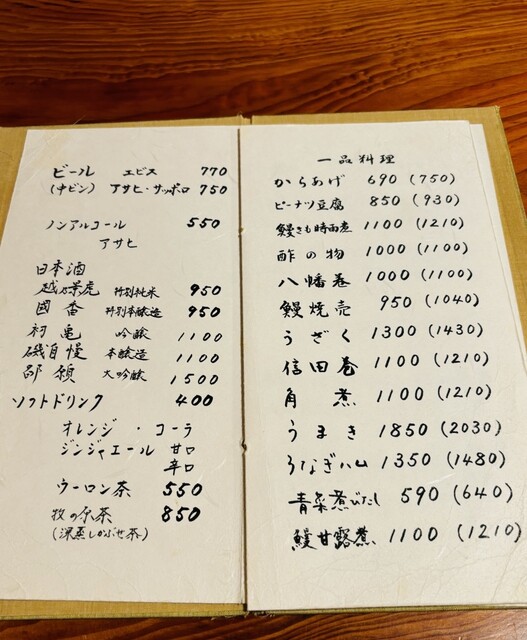 ビール エビス 770
(中ビン) アサヒ・サッポロ 750
ノンアルコール 550
アサヒ
日本酒
越乃景虎 特別純米 950
國香 特別本醸造 950
初亀 吟醸 1100
磯自慢 本醸造 1100
大吟醸 1500
ソフトドリンク 400
オレンジ・コーラ
ジンジャエール 甘口
辛口
ウーロン茶 550
牧の原茶 850
(深蒸しかぶせ茶)
一品料理
からあげ 690 (750)
ピーナツ豆腐 850 (930)
鰻きも時雨煮 1100 (1210)
酢の物 1000 (1100)
八幡巻 1000 (1100)
鰻焼売 950 (1040)
うざく 1300 (1430)
信田巻 1100 (1210)
角煮 1100 (1210)
うまき 1850 (2030)
うなぎハム 1350 (1480)
青菜煮びたし 590 (640)
鰻甘露煮 1100 (1210)